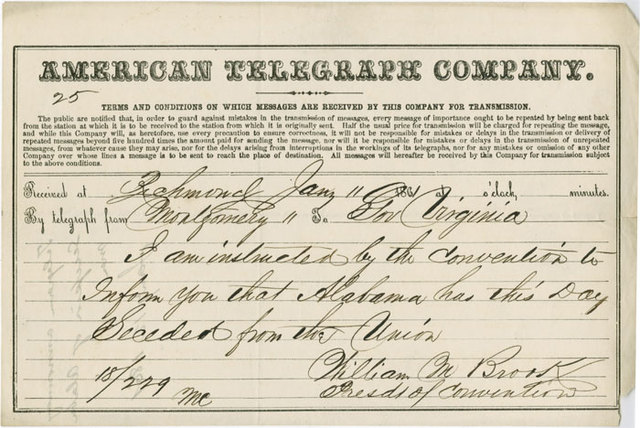 AMERICAN TELEGRAPH COMPANY.
25
TERMS AND CONDITIONS ON WHICH MESSAGES ARE RECEIVED BY THIS COMPANY FOR TRANSMISSION.
The public are notified that, in order to guard against mistakes in the transmission of messages, every message of importance ought to be repeated by being sent back
from the station at which it is to be received to the station from which it is originally sent. Half the usual price for transmission will be charged for repeating the message,
and while this Company will, as heretofore, use every precaution to ensure correctness, it will not be responsible for mistakes or delays in the transmission or delivery of
repeated messages beyond five hundred times the amount paid for sending the message, nor will it be responsible for mistakes or delays in the transmission of unrepeated
messages, from whatever cause they may arise, nor for the delays arising from interruptions in the workings of the telegraphs, nor for any mistakes or omission of any other
Company over whose lines a message is to be sent to reach the place of destination. All messages will hereafter be received by this Company for transmission subject
to the above conditions.
Received at Richmond Jany 11 1861 at o'clock, minutes.
By telegraph from Montgomery 11 To Gov Virginia
I am instructed by the convention to
Inform you that Alabama has this Day
Seceded from the Union
William M Brook
18/229 Presdt of Convention
Mc